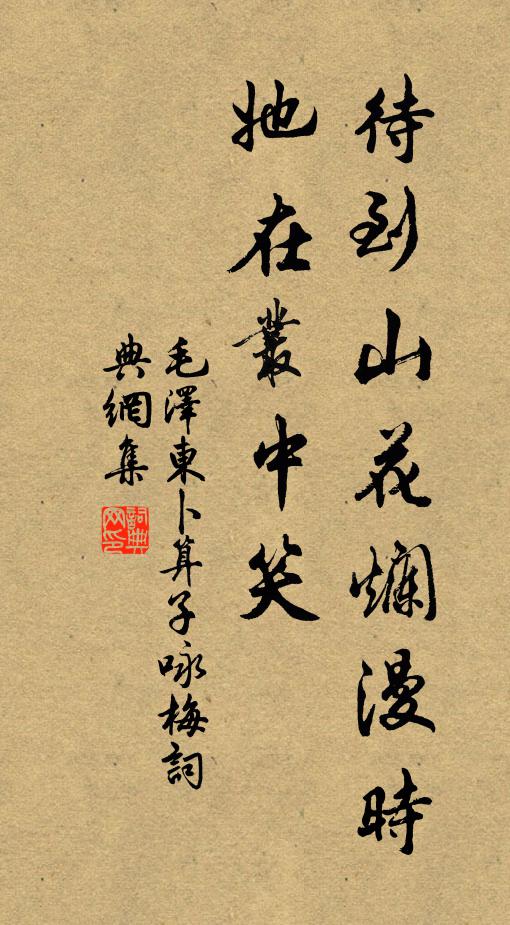 待到山花爛漫時
她在叢中笑
毛澤東卜算子咏梅詞
典網集
詞典網印